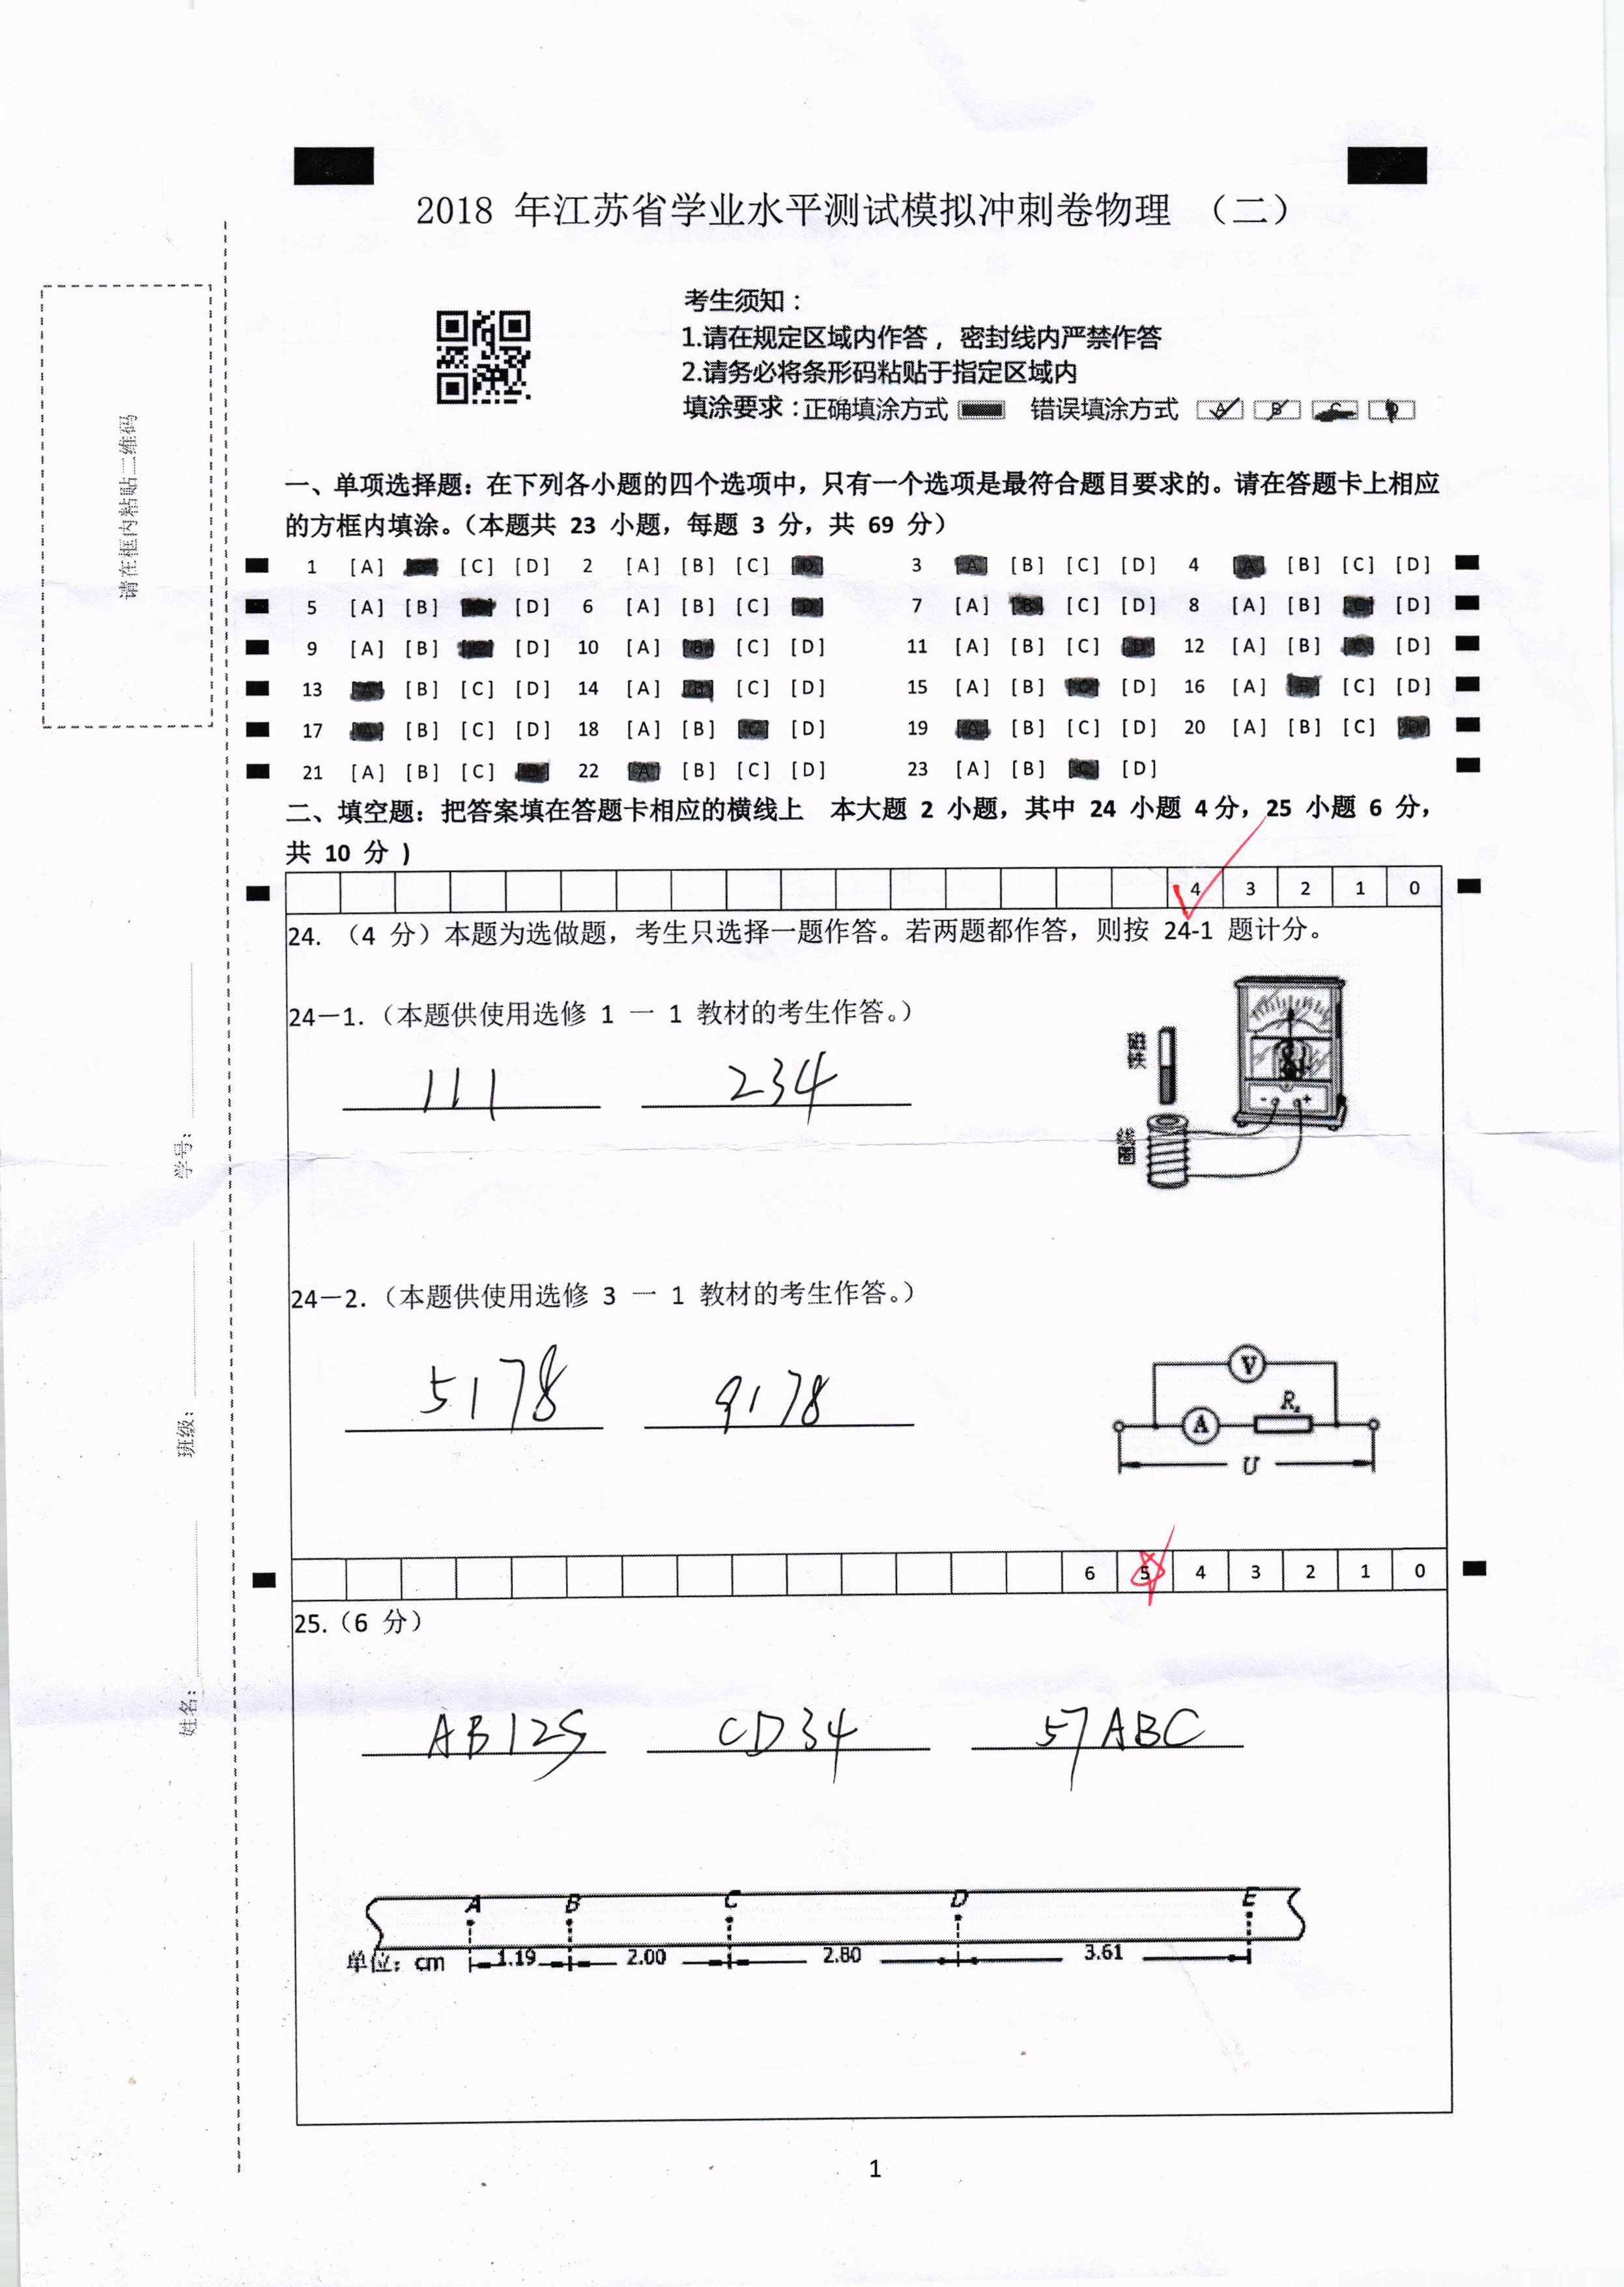 2018 年江苏省学业水平测试模拟冲刺卷物理 （二）
请在框内粘贴二维码
考生须知：
1.请在规定区域内作答，密封线内严禁作答
2.请务必将条形码粘贴于指定区域内
填涂要求：正确填涂方式 错误填涂方式 A B C D
一、单项选择题：在下列各小题的四个选项中，只有一个选项是最符合题目要求的。请在答题卡上相应
的方框内填涂。（本题共 23 小题，每题 3 分，共 69 分）
1 [A] [C] [D] 2 [A] [B] [C] [D] 3 [A] [B] [C] [D] 4 [A] [B] [C] [D]
5 [A] [B] [D] 6 [A] [B] [C] [D] 7 [A] [B] [C] [D] 8 [A] [B] [C] [D]
9 [A] [B] [C] [D] 10 [A] [B] [C] [D] 11 [A] [B] [C] [D] 12 [A] [B] [C] [D]
13 [A] [B] [C] [D] 14 [A] [B] [C] [D] 15 [A] [B] [C] [D] 16 [A] [B] [C] [D]
17 [A] [B] [C] [D] 18 [A] [B] [C] [D] 19 [A] [B] [C] [D] 20 [A] [B] [C] [D]
21 [A] [B] [C] [D] 22 [A] [B] [C] [D] 23 [A] [B] [C] [D]
二、填空题：把答案填在答题卡相应的横线上 本大题 2 小题，其中 24 小题 4分，25 小题 6 分，
共 10 分 )
4 3 2 1 0
24. （4 分）本题为选做题，考生只选择一题作答。若两题都作答，则按 24-1 题计分。
24－1.（本题供使用选修 1 一 1 教材的考生作答。）
磁铁
111 234
线圈
- +
学号：
24－2.（本题供使用选修 3 一 1 教材的考生作答。）
5178 9178
V
A Rx
U
班级：
6 5 4 3 2 1 0
25.（6 分）
姓名：
AB125 CD34 57ABC
A B C D E
单位：cm 1.19 2.00 2.80 3.61
1